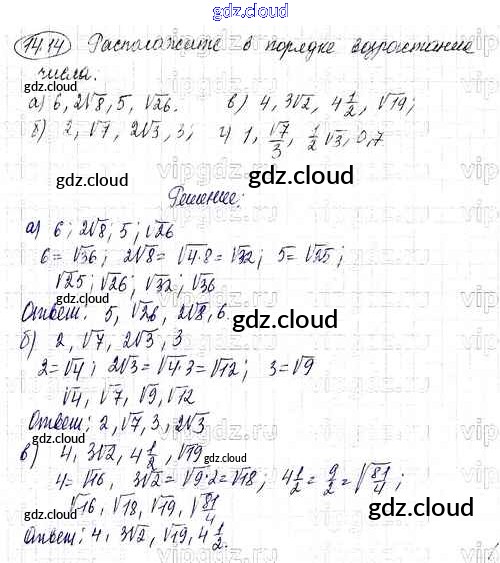 gdz.cloud
14.14 Расположите в порядке возрастание
числа.
а) 6, 2√8, 5, √26. в) 4, 3√2, 4 1/2, √19;
б) 2, √7, 2√3, 3; г) 1, √7/3, 1/2 √3, 0,7
gdz.cloud gdz.cloud
Решение:
а) 6; 2√8; 5; √26
6 = √36; 2√8 = √4·8 = √32; 5 = √25;
√25; √26; √32; √36
Ответ: 5, √26, 2√8, 6.
gdz.cloud
б) 2, √7, 2√3, 3
2 = √4; 2√3 = √4·3 = √12; 3 = √9
√4, √7, √9, √12
Ответ: 2, √7, 3, 2√3
gdz.cloud
в) 4, 3√2, 4 1/2, √19
4 = √16, 3√2 = √9·2 = √18; 4 1/2 = 9/2 = √81/4;
√16, √18, √19, √81/4
gdz.cloud
Ответ: 4, 3√2, √19, 4 1/2.
gdz.cloud